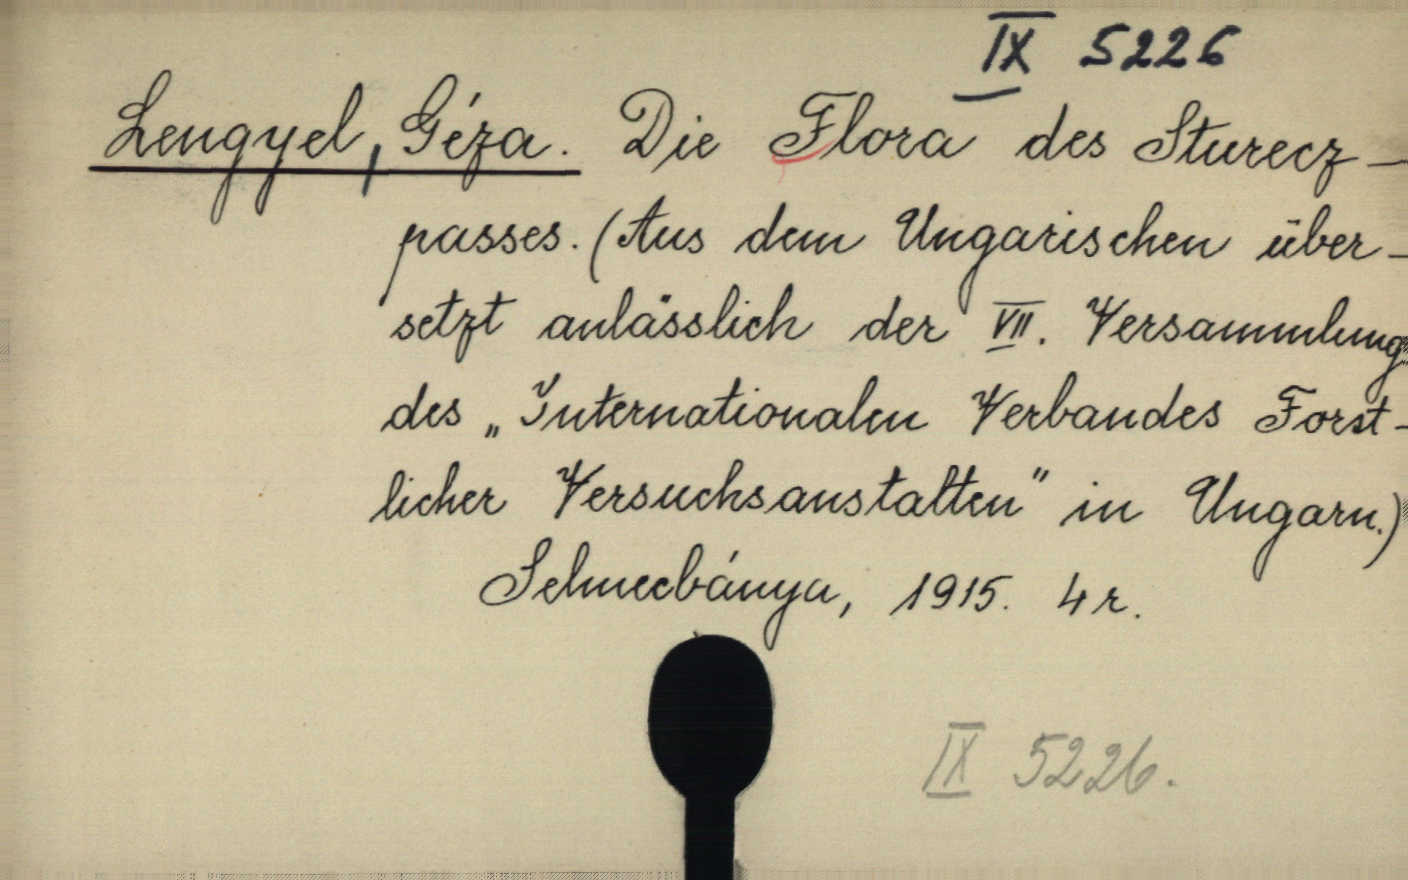 IX 5226
Lengyel, Géza. Die Flora des Sturecz-
passes. (Aus dem Ungarischen über-
setzt anlässlich der VII. Versammlung
des „Internationalen Verbandes Forst-
licher Versuchsanstalten" in Ungarn.)
Selmecbánya, 1915. 4r.
IX 5226.